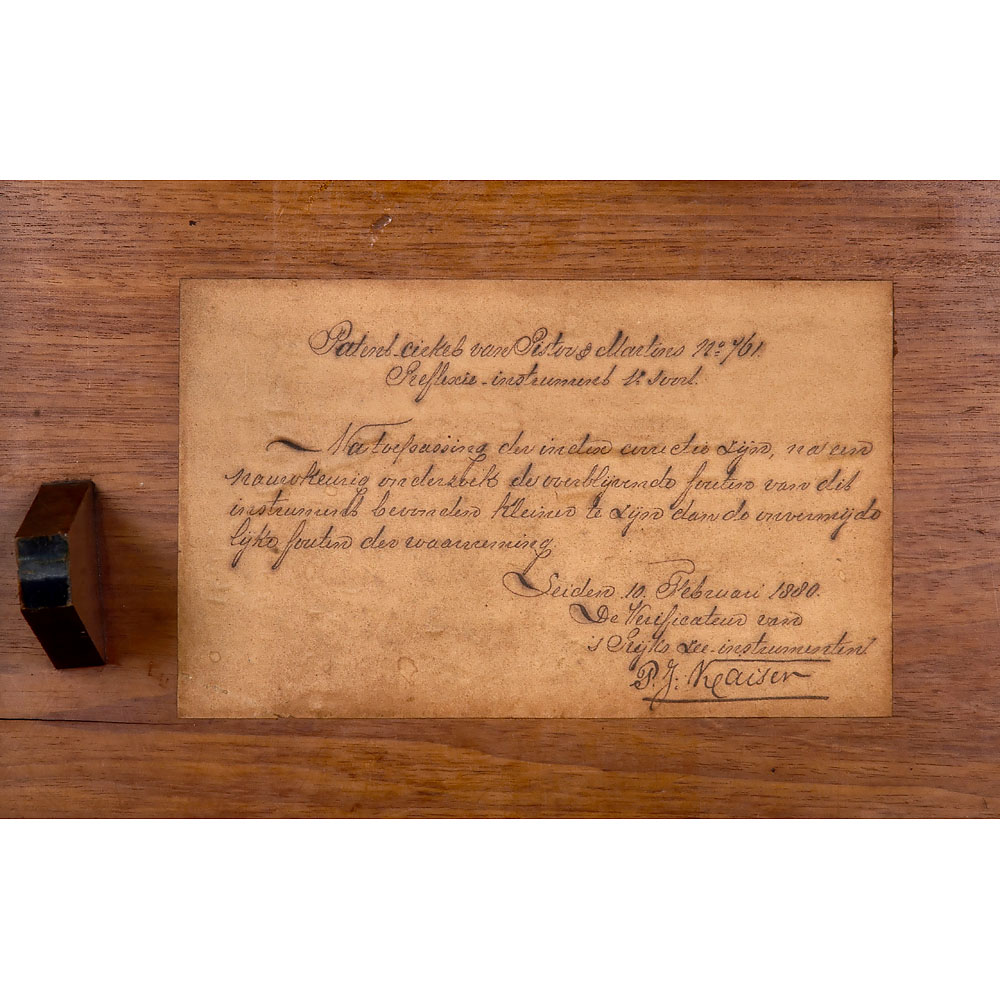 Patent-cirkel van Pistor & Martins No. 761.
Reflexie-instrument 1e soort.
Na toepassing der index correctie zijn, na een
nauwkeurig onderzoek de overblijvende fouten van dit
instrument bevonden kleiner te zijn dan de onvermijde
lijke fouten der waarneming.
Leiden 10. Februari 1880.
De Verificateur van
's Rijks Zee-instrumenten
P. J. Kaiser